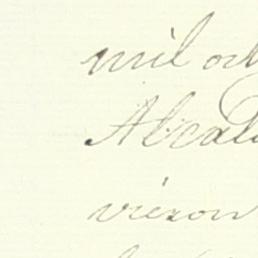 mil och
Alcald
vieron